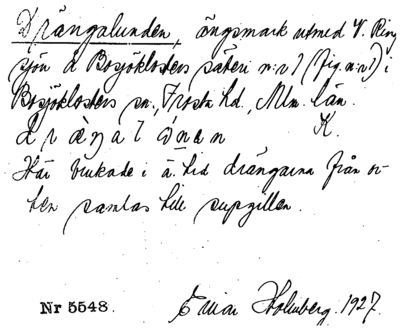 Drängalunden, ängsmark utmed V. Ring
sjön å Bosjöklosters säteri n:r 1 (fig. n:r 1) i
Bosjöklosters sn, Frosta hd, Mlm. län.
K.
Här brukade i ä. tid drängarna från or-
ten samlas till supgillen.
Nr 5548. Einar Holmberg. 1927.